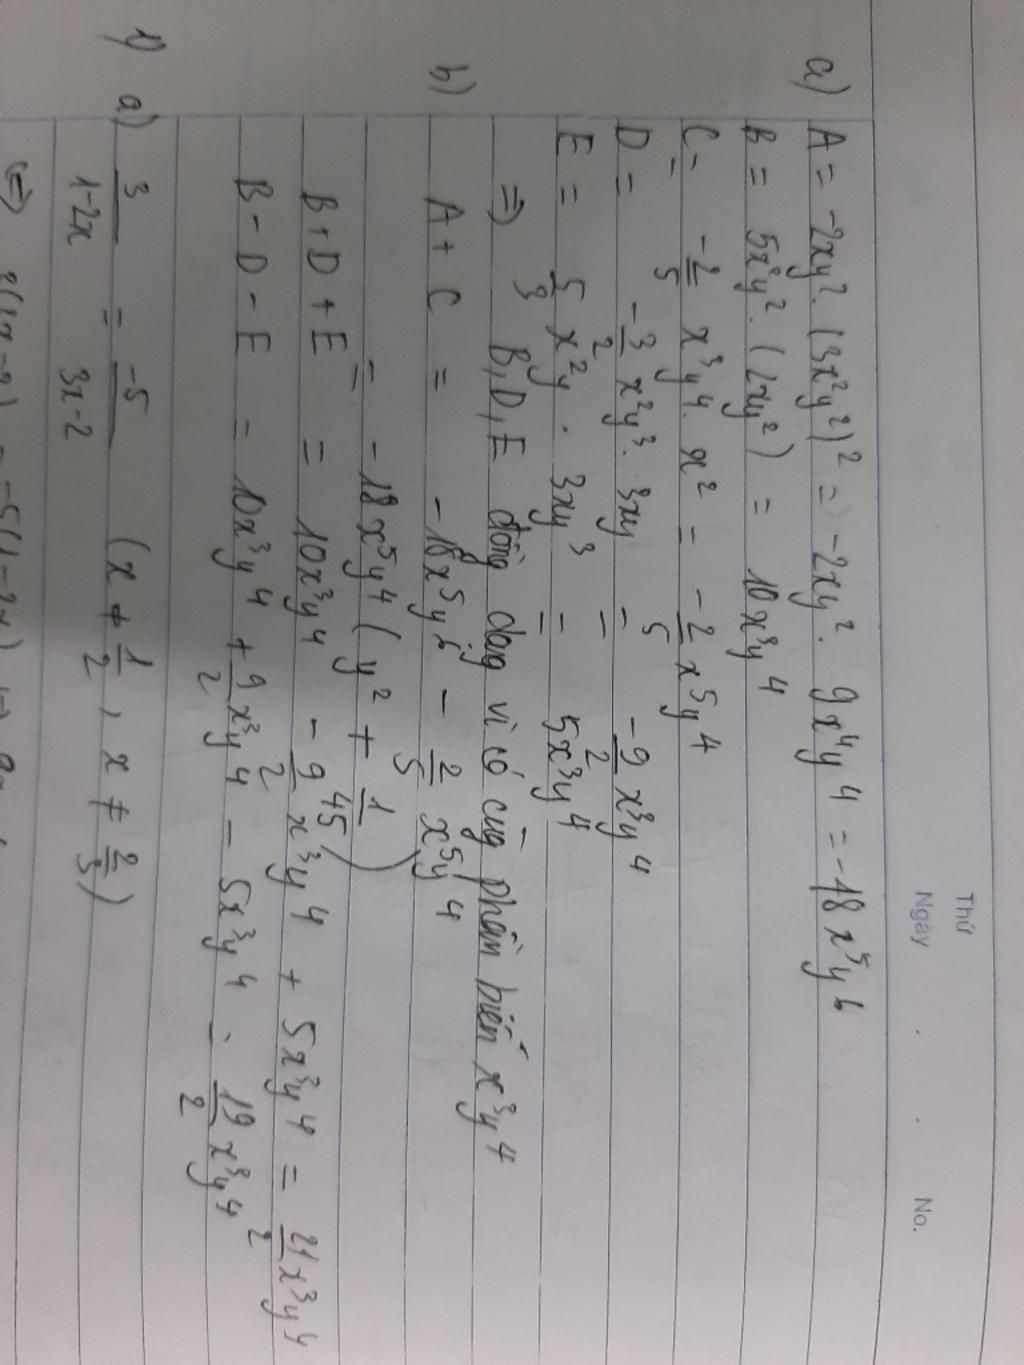 Thứ
Ngày . . No.
a) A = -2xy². (3x²y²)² = -2xy². 9x⁴y⁴ = -18x⁵y⁶
B = 5x²y². (2xy²) = 10x³y⁴
C = -2/5 x³y⁴. x² = -2/5 x⁵y⁴
D = -3/2 x²y³. 3xy = -9/2 x³y⁴
E = 5/3 x²y. 3xy³ = 5x³y⁴
=> B, D, E đồng dạng vì có cùng phần biến x³y⁴
b) A + C = -18x⁵y⁶ - 2/5 x⁵y⁴
= -18x⁵y⁴ (y² + 1/45)
B + D + E = 10x³y⁴ - 9/2 x³y⁴ + 5x³y⁴ = 21/2 x³y⁴
B - D - E = 10x³y⁴ + 9/2 x³y⁴ - 5x³y⁴ = 19/2 x³y⁴
1) a) 3/(1-2x) = -5/(3x-2) (x ≠ 1/2, x ≠ 2/3)